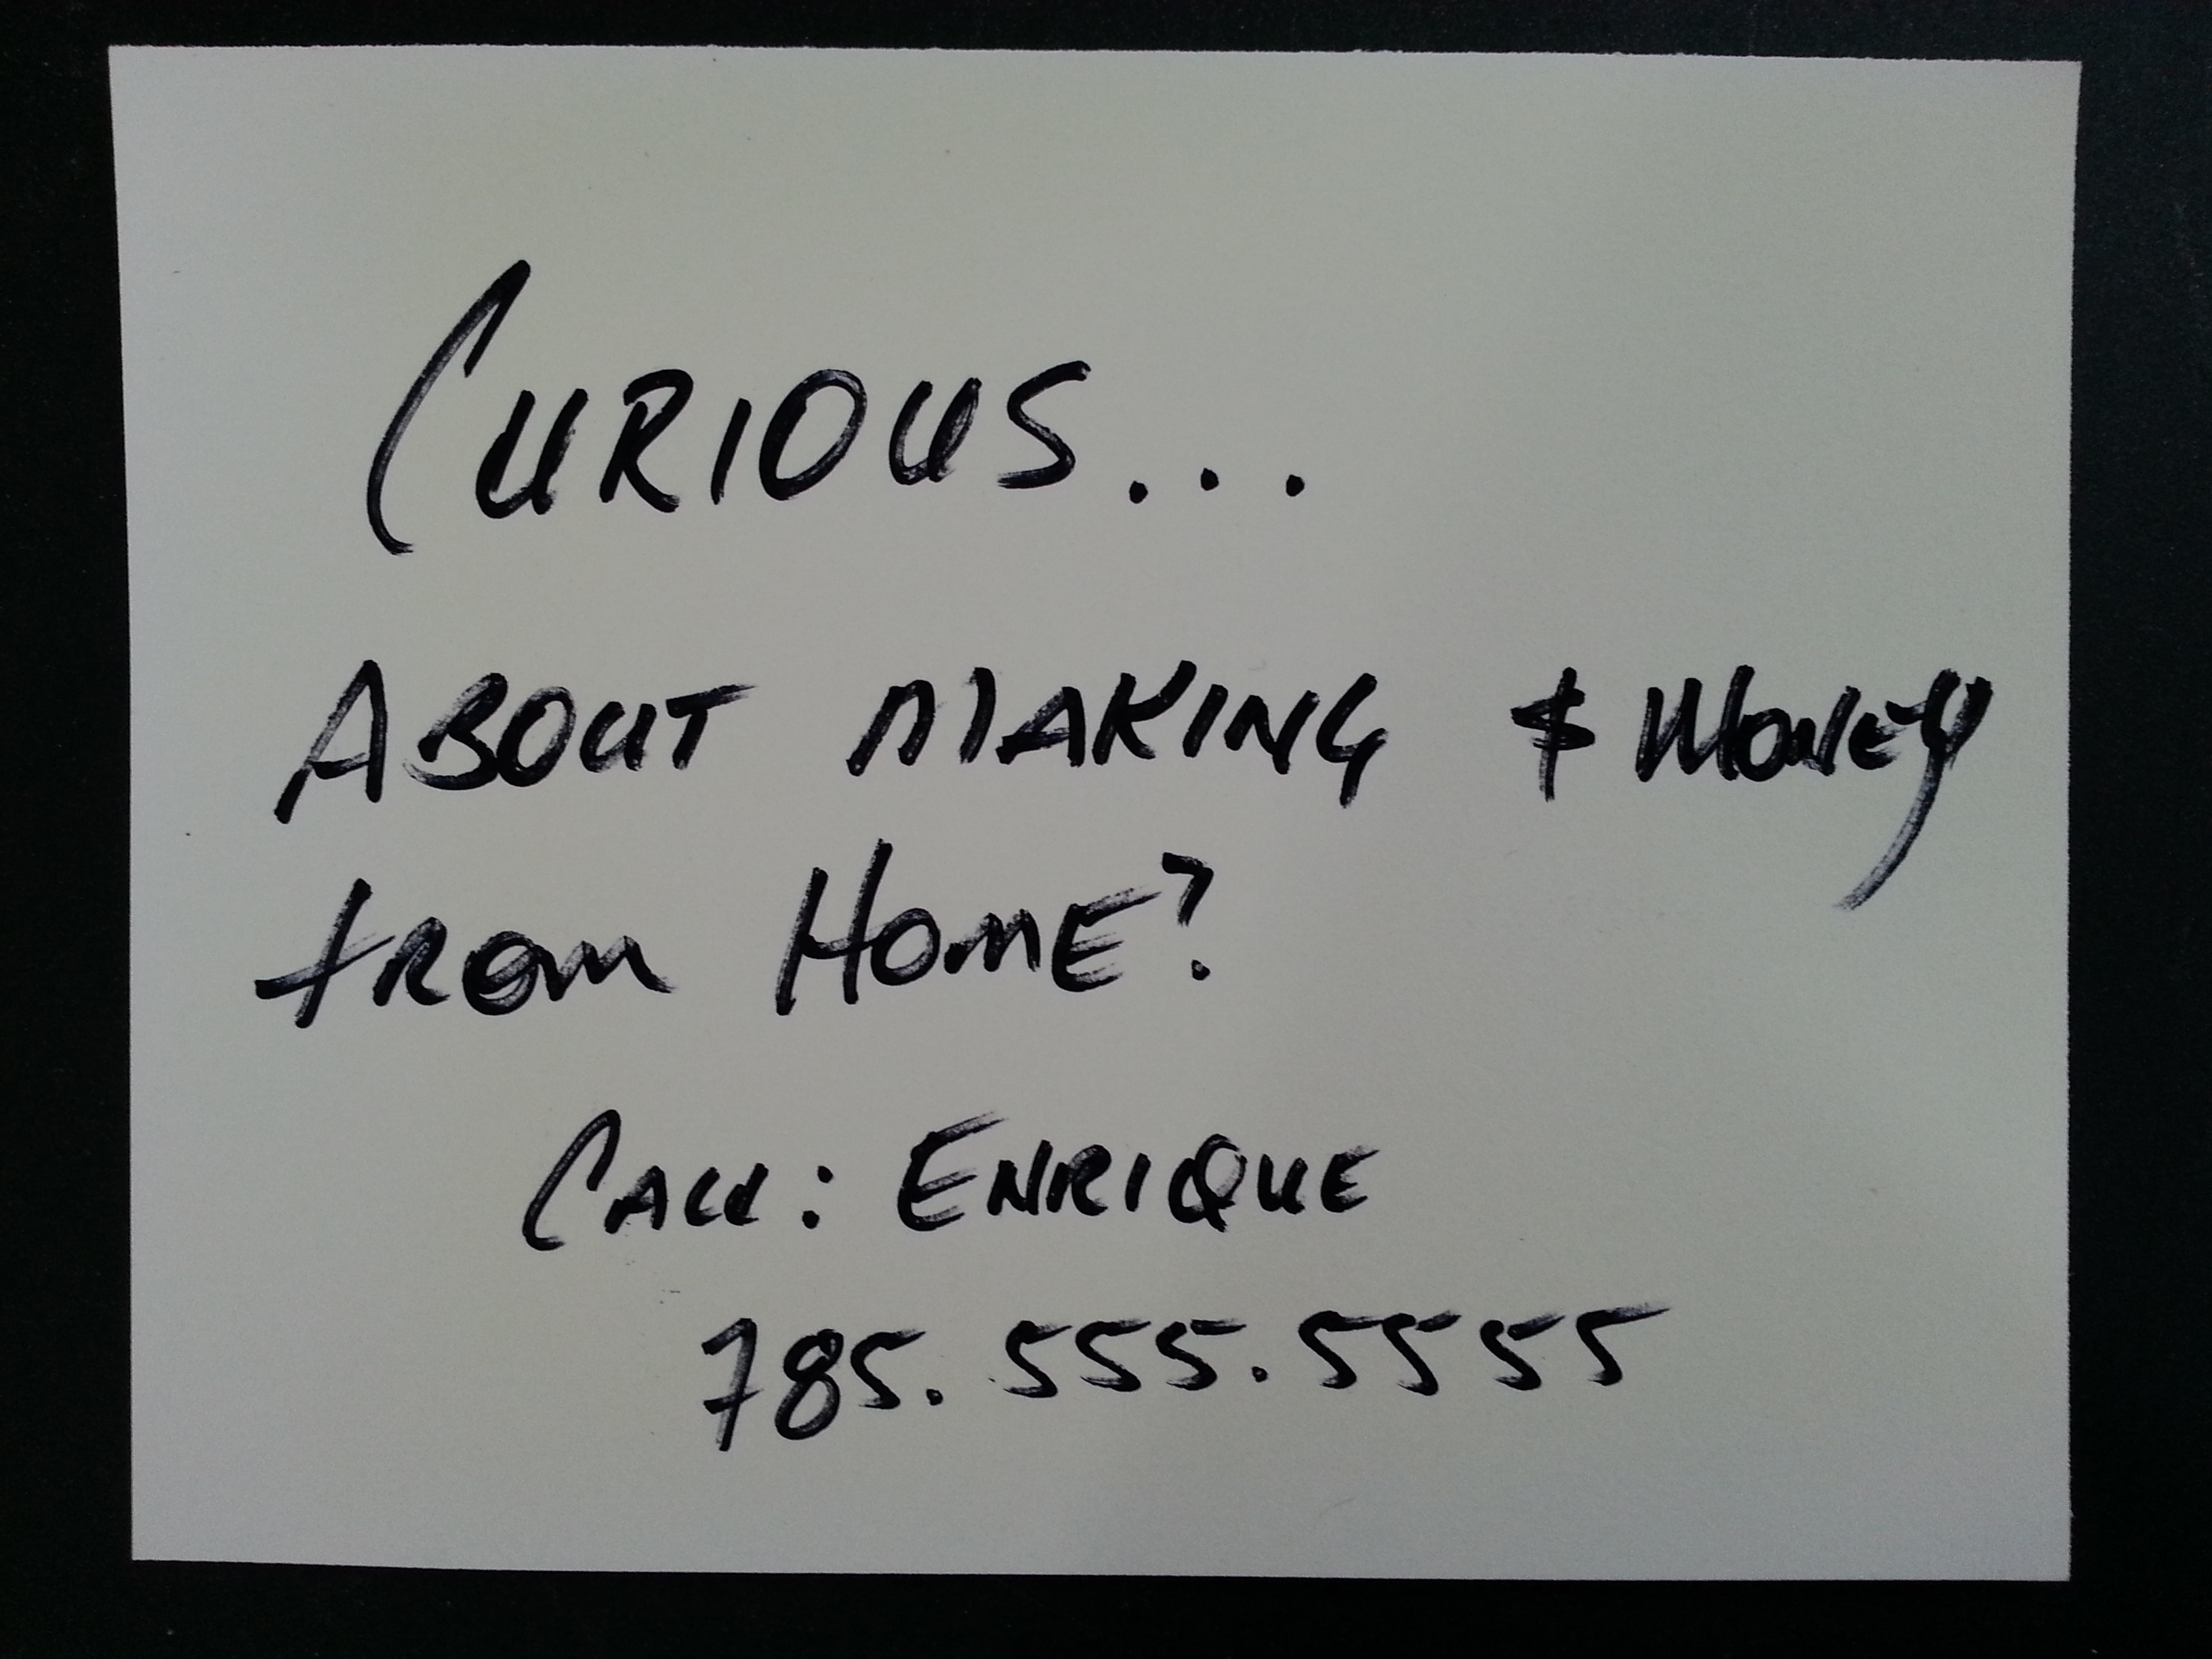 CURIOUS...
ABOUT MAKING $ MONEY
FROM HOME?
CALL: ENRIQUE
785.555.5555